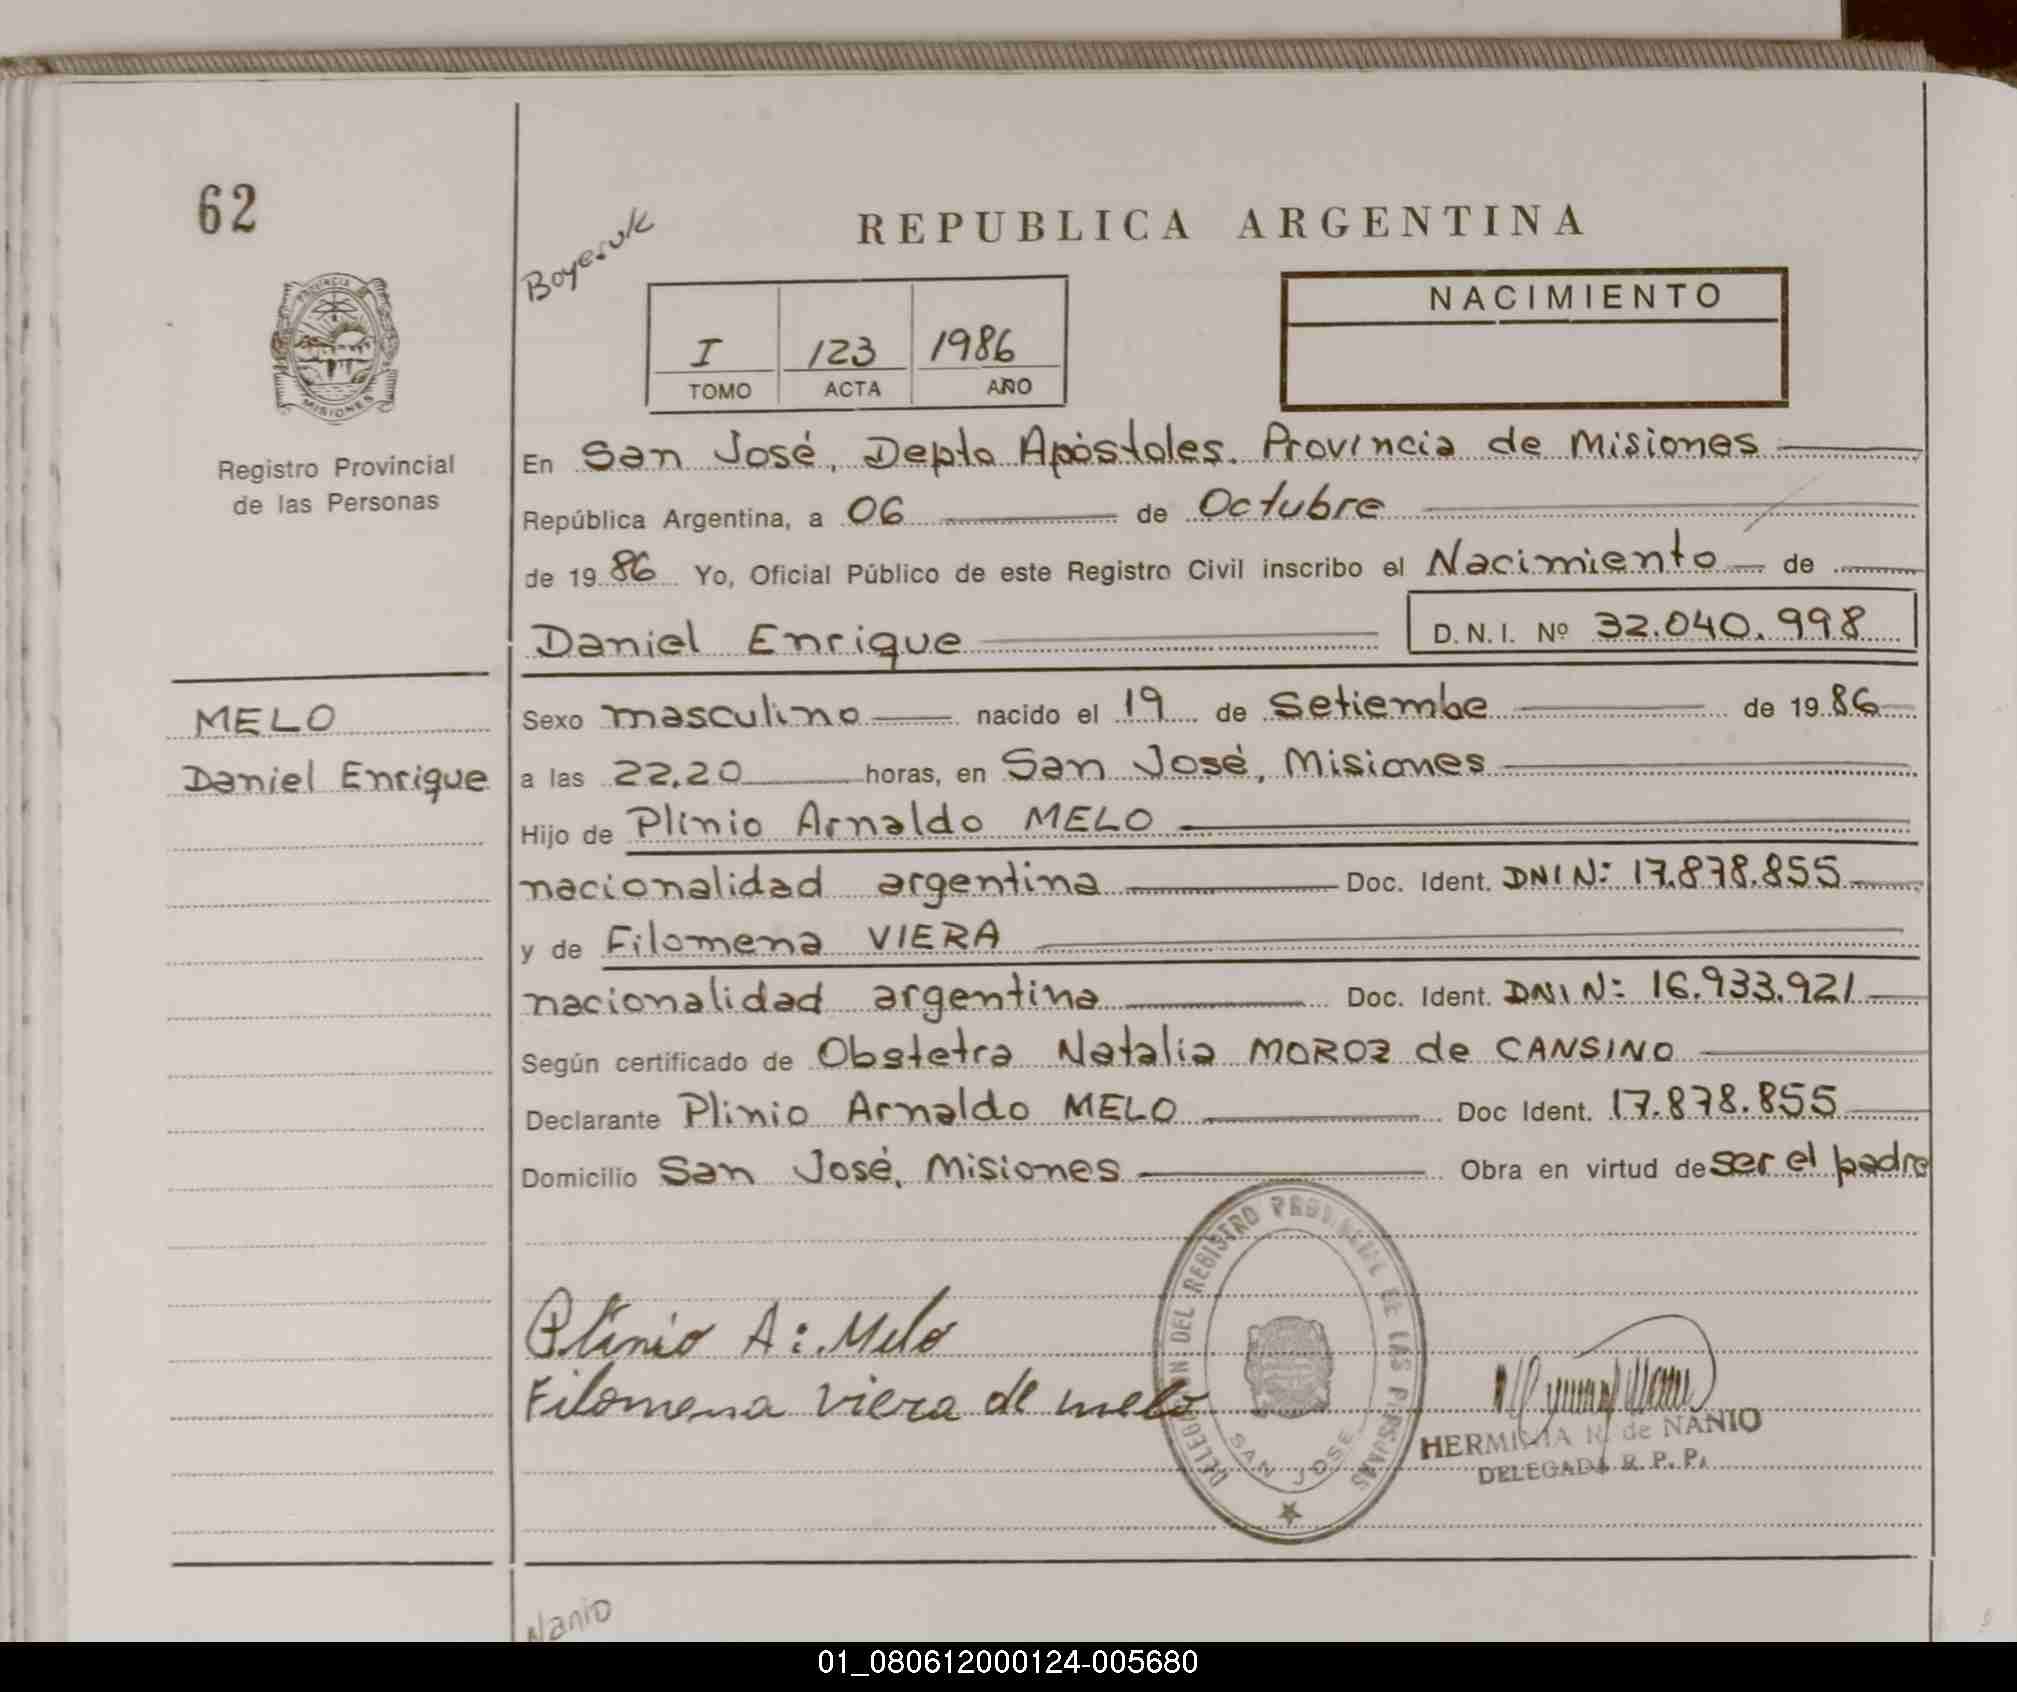 62
Boyeruk
REPUBLICA ARGENTINA
PROVINCIA DE
MISIONES
NACIMIENTO
I 123 1986
TOMO ACTA AÑO
Registro Provincial
de las Personas
En San José, Depto Apóstoles. Provincia de Misiones
República Argentina, a 06 de Octubre
de 1986 Yo, Oficial Público de este Registro Civil inscribo el Nacimiento de
Daniel Enrique D.N.I. Nº 32.040.998
MELO
Daniel Enrique
Sexo masculino nacido el 19 de Setiembe de 1986
a las 22,20 horas, en San José, Misiones
Hijo de Plinio Arnaldo MELO
nacionalidad argentina Doc. Ident. DNI N: 17.878.855
y de Filomena VIERA
nacionalidad argentina Doc. Ident. DNI N: 16.933.921
Según certificado de Obstetra Natalia MOROZ de CANSINO
Declarante Plinio Arnaldo MELO Doc Ident. 17.878.855
Domicilio San José, Misiones Obra en virtud de ser el padre
Plinio A: Melo
Filomena Viera de melo
DELEGACION DEL REGISTRO PROVINCIAL DE LAS PERSONAS
SAN JOSE
HERMINIA R. de NANIO
DELEGADA R. P. P.
Nanio
01_080612000124-005680